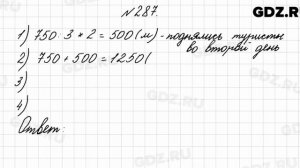 GDZ.RU
№287.
1) 750 : 3 * 2 = 500 (м) - поднялись туристы
во второй день
2) 750 + 500 = 1250 (
3)
4)
Ответ:
GDZ.RU